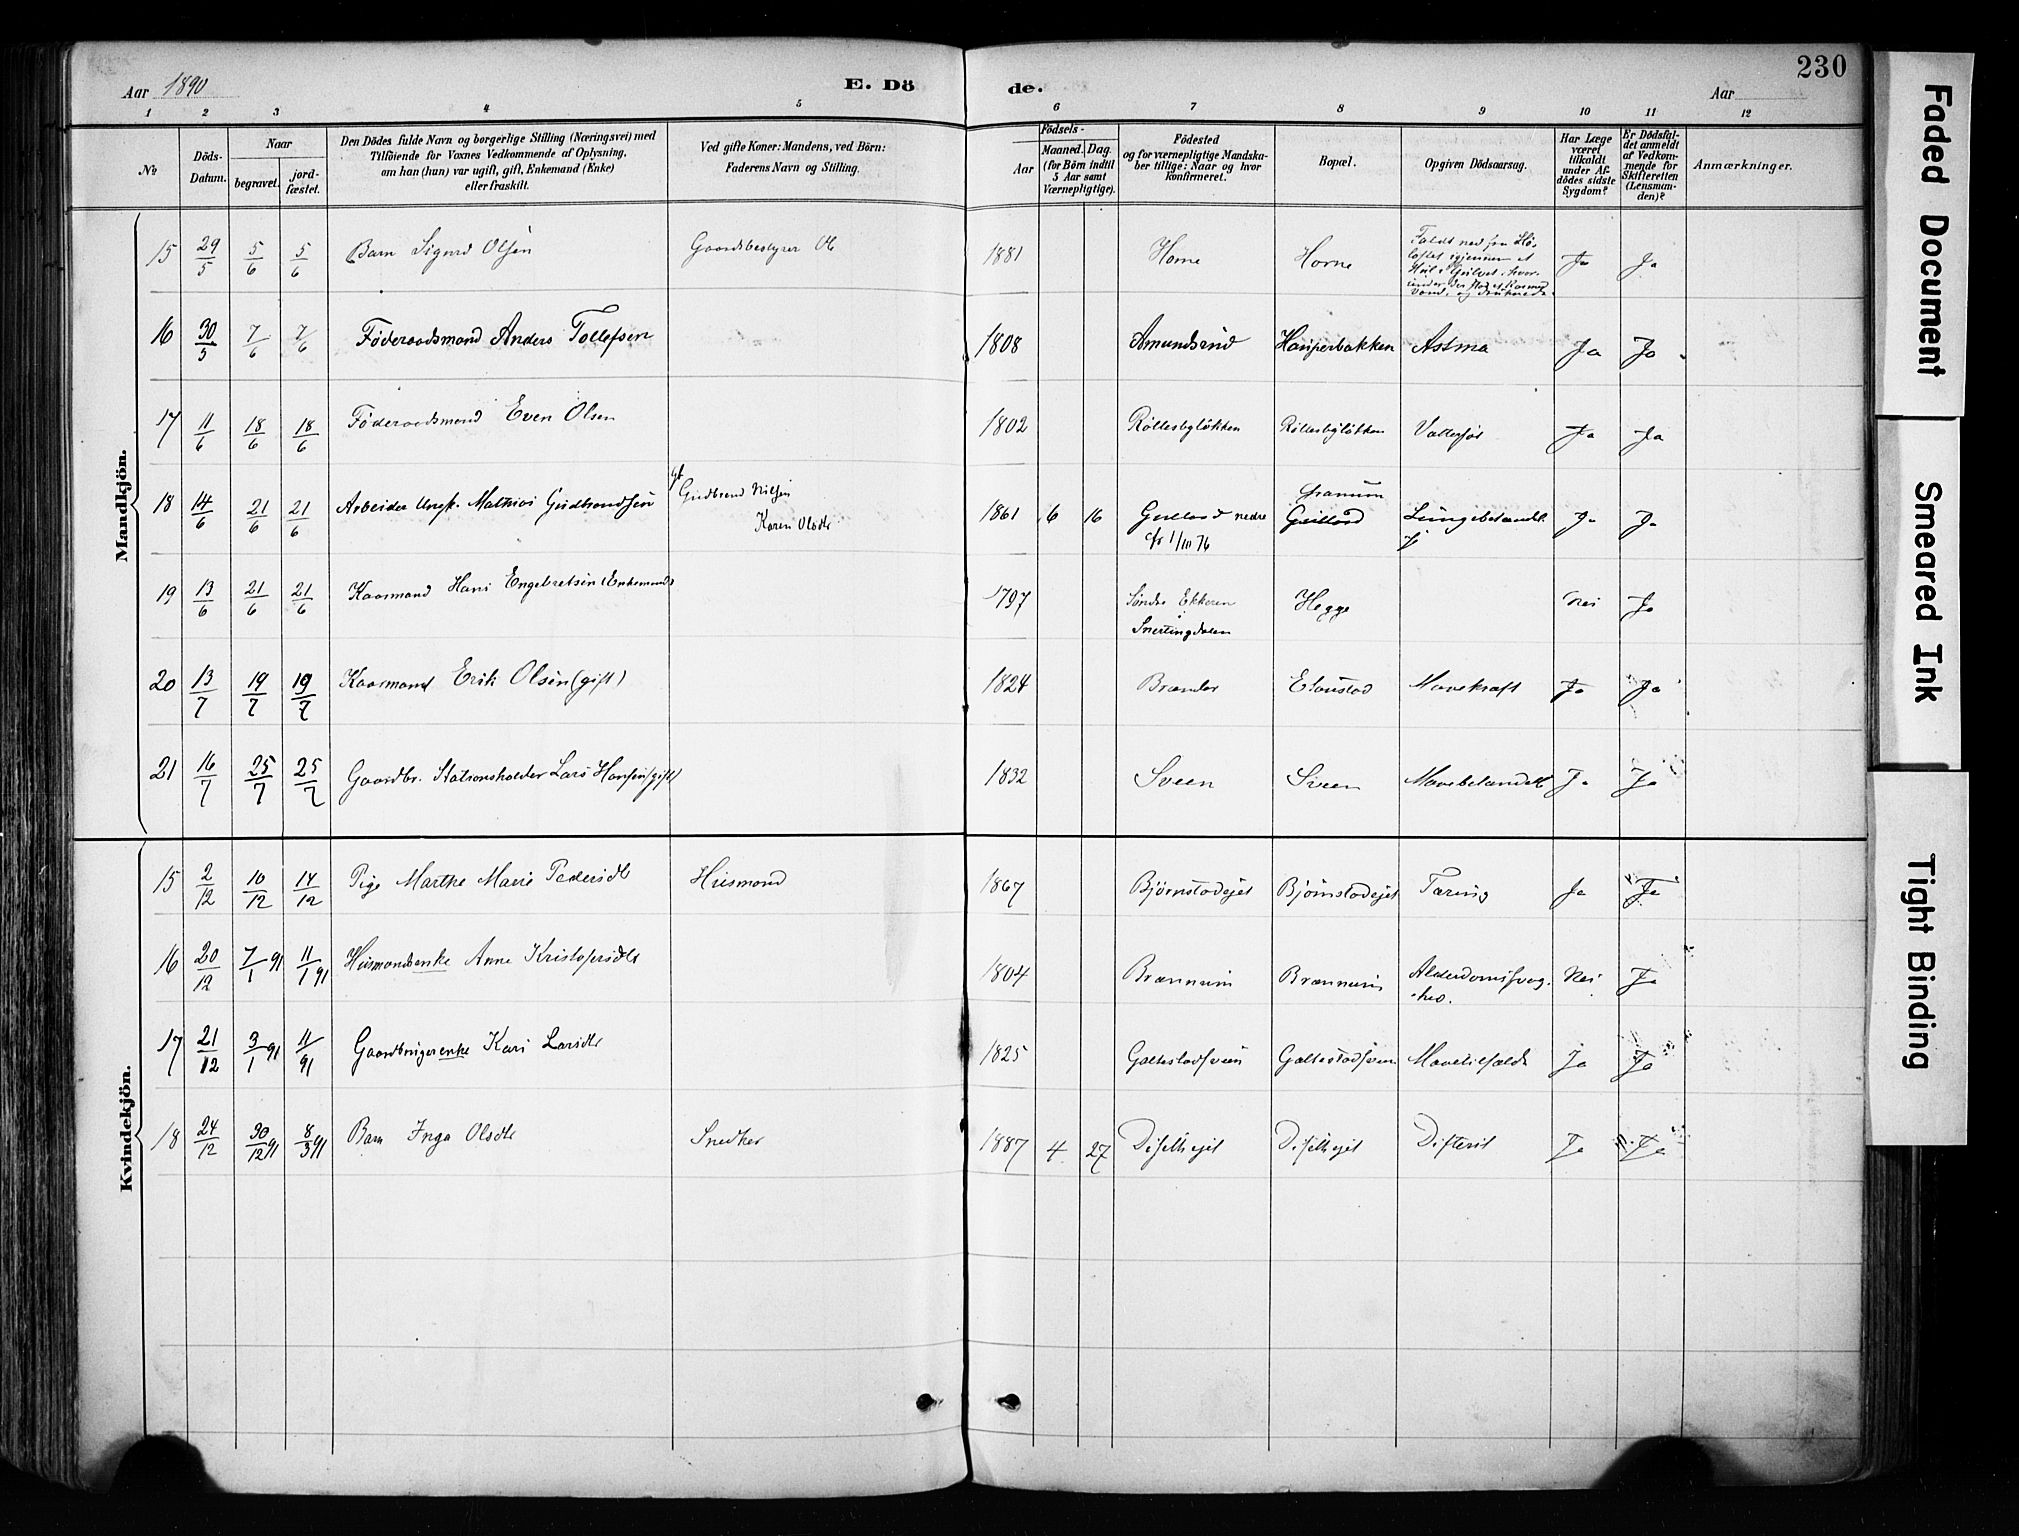 Aar 1890
E. Dö
de.
Aar
230
1 2 3 4 5 6 7 8 9 10 11 12
No
Döds-Datum.
Naar
begravet.
jord-fæstet.
Den Dödes fulde Navn og borgerlige Stilling (Næringsvei) med
Tilföiende for Voxnes Vedkommende af Oplysning,
om han (hun) var ugift, gift, Enkemand (Enke)
eller fraskilt.
Ved gifte Koner: Mandens, ved Börn:
Faderens Navn og Stilling.
Födsels-
Aar
Maaned. Dag.
(for Börn indtil
5 Aar samt
Værnepligtige).
Födested
og for værnepligtige Mandska-
ber tillige: Naar og hvor
konfirmeret.
Bopæl.
Opgiven Dödsaarsag.
Har Læge
været
tilkaldt
under Af-
dödes sidste
Sygdom?
Er Dödsfal-
det anmeldt
af Vedkom-
mende for
Skifteretten
(Lensman-
den)?
Anmærkninger.
Mandkjön.
15 29/5 5/6 5/6 Barn Sigurd Olsen Gaardsbestyrer Ole 1881 Horne Horne Faldt ned fra Hø- Ja Ja
løftet igjennem et
Hul i Gulvet, hvor-
under der stod et Kar med
Vand, og druknede.
16 30/5 7/6 7/6 Føderaadsmand Anders Tollefsen 1808 Amundsrud Hausperbakken Astma Ja Ja
17 11/6 18/6 18/6 Føderaadsmand Even Olsen 1802 Røllesbyløkken Røllesbyløkken Vattersot Ja Ja
18 14/6 21/6 21/6 Arbeider Ungk. Mathias Gudbrandsen Gudbrand Nilsen 1861 6 16 Gullord nedre Granum Lungebetændelse Ja Ja
Karen Olsdtr
1/10 76 Gullord
19 13/6 21/6 21/6 Kaarmand Hans Engebretsen (Enkemand) 1797 Søndre Ekkeren Hegge Nei Ja
i
Snertingdalen
20 13/7 19/7 19/7 Kaarmand Erik Olsen (gift) 1824 Brændor Elaustad Mavekræft Ja Ja
21 16/7 25/7 25/7 Gaardbr. Stationsholder Lars Hansen (gift) 1832 Sveen Sveen Mavebetændelse Ja Ja
Kvindekjön.
15 2/12 10/12 14/12 Pige Marthe Marie Pedersdtr Husmand 1867 Bjørnstadejet Bjørnstadejet Tæring Ja Ja
16 20/12 7/1 91 11/1 91 Husmandsenke Anne Kristofersdtr 1804 Brænnum Brænnum Alderdomssvag- Nei Ja
hed.
17 21/12 3/1 91 11/91 Gaardbrugerenke Kari Larsdtr 1825 Galtestadsveen Galtestadsveen Mavetilfælde Ja Ja
18 24/12 30/12 91 8/3 91 Barn Inga Olsdtr Snedker 1887 4 27 Disethejet Disethejet Difterit Ja Ja
Faded Document
Smeared Ink
Tight Binding